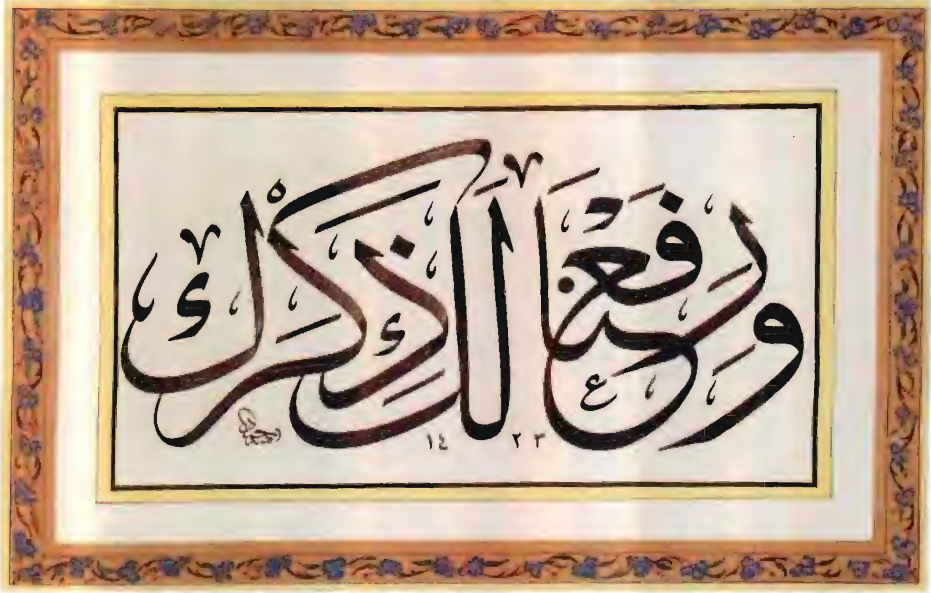 ورفعنا لك ذكرك
١٤٢٣